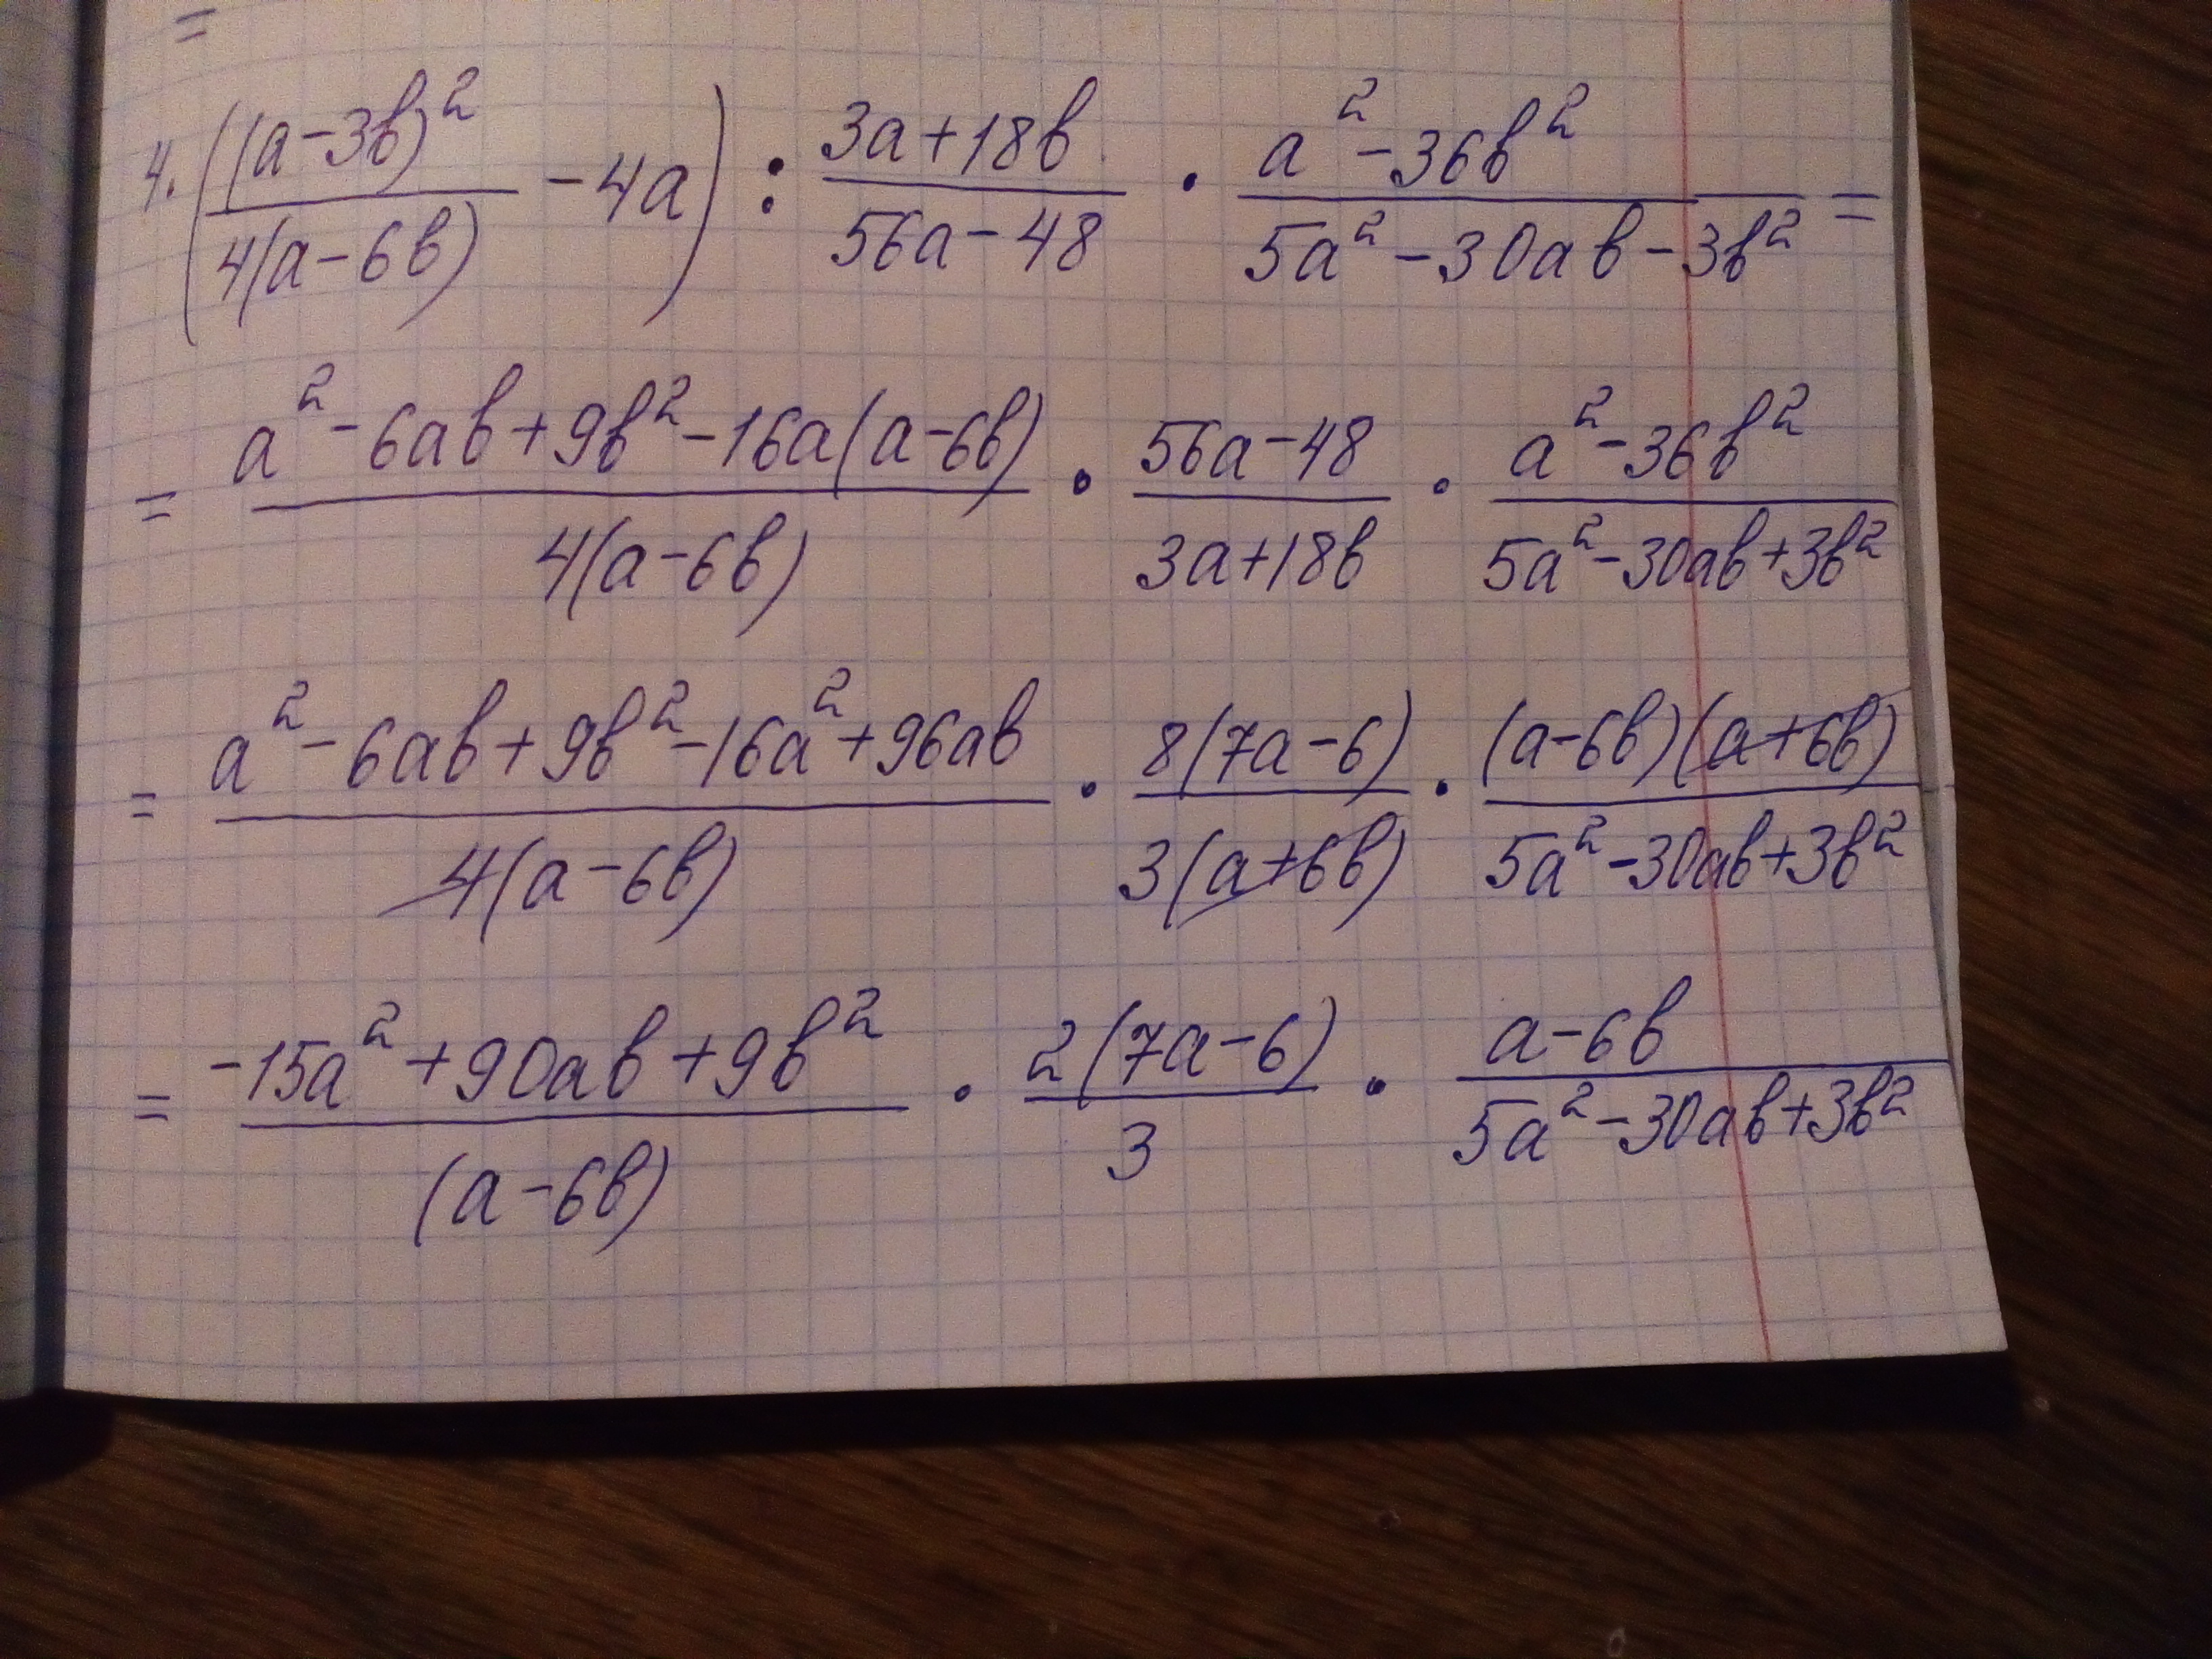 =
4. ((a-3b)²/4(a-6b) - 4a) : 3a+18b/56a-48 · a²-36b²/5a²-30ab-3b² =
= a²-6ab+9b²-16a(a-6b)/4(a-6b) · 56a-48/3a+18b · a²-36b²/5a²-30ab+3b²
= a²-6ab+9b²-16a²+96ab/4(a-6b) · 8(7a-6)/3(a+6b) · (a-6b)(a+6b)/5a²-30ab+3b²
= -15a²+90ab+9b²/(a-6b) · 2(7a-6)/3 · a-6b/5a²-30ab+3b²